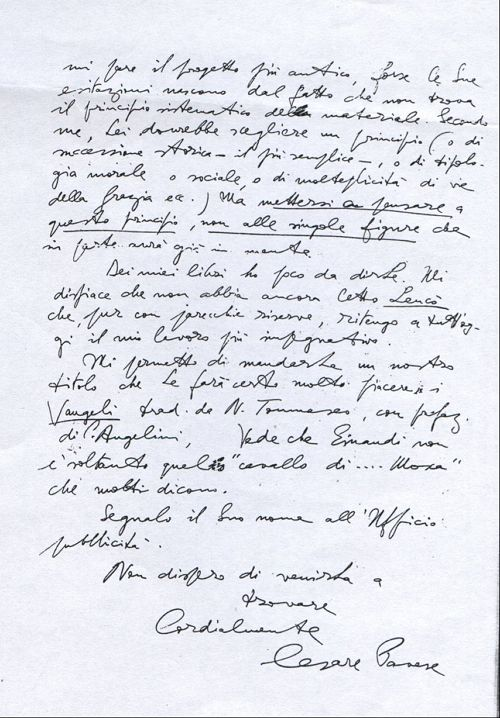 mi pare il progetto più antico, forse le Sue
esitazioni nascono dal fatto che non trova
il principio sistematico della materiale. Secondo
me, Lei dovrebbe scegliere un principio (o di
successione storica – il più semplice –, o di tipolo-
gia morale o sociale, o di molteplicità di vie
della Grazia ec.) Ma mettersi a pensare a
questo principio, non alle singole figure che
in parte avrà già in mente.
Dei miei libri ho poco da dirle. Mi
dispiace che non abbia ancora letto Leucò
che, pur con parecchie riserve, ritengo a tutt'og-
gi il mio lavoro più impegnativo.
Mi permetto di mandarle un nostro
titolo che Le farà certo molto piacere: i
Vangeli trad. da N. Tommaseo, con prefaz.
di C. Angelini, Vede che Einaudi non
è soltanto quel "cavallo di .... Mosca"
che molti dicono.
Segnalo il Suo nome all'Ufficio
pubblicità.
Non dispero di venirla a
trovare
Cordialmente
Cesare Pavese